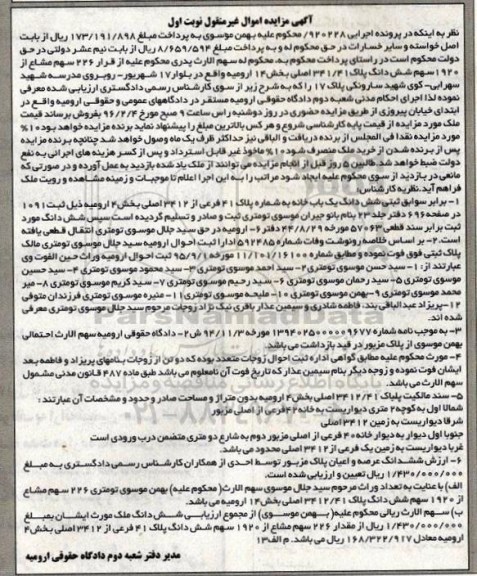 آگهی مزایده اموال غیرمنقول نوبت اول
نظر به اینکه در پرونده اجرایی ۹۲۰۲۲۸/ محکوم علیه بهمن موسوی به پرداخت مبلغ ۱۷۳/۱۹۱/۸۹۸ ریال از بابت
اصل خواسته و سایر خسارات در حق محکوم له و به پرداخت مبلغ ۸/۶۵۹/۵۹۴ ریال از بابت نیم عشر دولتی در حق
دولت محکوم است در راستای پرداخت محکوم به، محکوم له سهم الارث پدری محکوم علیه از قرار ۲۲۶ سهم مشاع از
۱۹۲۰ سهم شش دانگ پلاک ۳۴۱/۴۱ اصلی بخش ۱۴ ارومیه واقع در بلوار ۱۷ شهریور- روبروی مدرسه شهید
سهرابی- کوی شهید سارونکی پلاک ۱۷ را که به شرح زیر از سوی کارشناس رسمی دادگستری ارزیابی شده معرفی
نموده لذا اجرای احکام مدنی شعبه دوم دادگاه حقوقی ارومیه مستقر در دادگاههای عمومی و حقوقی ارومیه واقع در
ابتدای خیابان پیروزی از طریق مزایده حضوری در روز دوشنبه راس ساعت ۹ صبح مورخ ۹۶/۲/۴ بفروش برساند قیمت
ملک مورد مزایده از قیمت پایه کارشناسی شروع و هر کس بالاترین مبلغ را پیشنهاد نماید برنده مزایده خواهد بود ۱۰٪
مورد مزایده نقدا فی المجلس از برنده دریافت و الباقی نیز حداکثر ظرف یک ماه وصول خواهد شد چنانچه برنده مزایده
پس از برنده شدن از خرید ملک منصرف شود ۱۰٪ ماخوذ غیر قابل استرداد و پس از کسر هزینه های اجرائی به نفع
دولت ضبط خواهد شد. طالبین ۵ روز قبل از انجام مزایده می توانند از ملک یاد شده بازدید به عمل آورده و در صورتی که
مانعی در بازدید از سوی محکوم علیه ایجاد شود مراتب را به این اجرا اعلام تا موجبات و زمینه مشاهده و رویت ملک
فراهم آید. نظریه کارشناس:
۱- برابر سوابق ثبتی شش دانگ یک باب خانه به شماره پلاک ۴۱ فرعی از ۳۴۱۲ اصلی بخش ۴ ارومیه ذیل ثبت ۱۰۹۱
در صفحه ۶۹۶ دفتر جلد ۲۳ بنام بانو جیران موسوی تومتری ثبت و صادر و تسلیم گردیده است سپس شش دانگ مورد
ثبت برابر سند قطعی ۵۷۰۶۳ مورخه ۴۴/۸/۲۹ دفتر ۶- ارومیه در حق سید جلال موسوی تومتری انتقال قطعی یافته
است. ۲- بر اساس خلاصه رونوشت وفات شماره ۵۹۲۴۸۵ اداره ثبت احوال ارومیه سید جلال موسوی تومتری مالک
پلاک ثبتی فوق فوت نموده و مطابق شماره ۱۱/۱۰۱/۱۶۱۰۰ مورخه ۹۵/۹/۱ ثبت احوال ارومیه وراث حین الفوت وی
عبارتند از: ۱- سید حسن موسوی تومتری ۲- سید احمد موسوی تومتری ۳- سید محمود موسوی تومتری ۴- سید حسین
موسوی تومتری ۵- سید رحمان موسوی تومتری ۶- سید رحیم موسوی تومتری ۷- سید کریم موسوی تومتری ۸- میر
محمد موسوی تومتری ۹- بهمن موسوی تومتری ۱۰- ملیحه موسوی تومتری ۱۱- منیره موسوی تومتری فرزندان متوفی
۱۲- پریزاد عبدالباقی بند، فاطمه عذری و سیمین عذار باقری نیک نژاد زوجات مرحوم سید جلال موسوی تومتری معرفی
شده اند.
۳- به موجب نامه شماره ۱۳۹۴۰۲۵۰۰۰۰۰۹۶۷۷ مورخه ۹۴/۱۱/۳ ش ۲- دادگاه حقوقی ارومیه سهم الارث احتمالی
بهمن موسوی از پلاک مزبور در قید بازداشت می باشد.
۴- مورث محکوم علیه مطابق گواهی اداره ثبت احوال زوجات متعدد بوده که دو تن از زوجات بنامهای پریزاد و فاطمه بعد
ایشان فوت نموده و زوجه دیگر بنام سیمین عذار که تاریخ فوت آن نامعلوم می باشد طبق ماده ۴۸۷ قانون مدنی مشمول
سهم الارث می باشد.
۵- سند مالکیت پلاک ۳۴۱۲/۴۱ اصلی بخش ۴ ارومیه بدون متراژ و مساحت صادر و حدود و مشخصات آن عبارتند:
شمالا اول به کوچه ۲ متری دیواریست به خانه ۴۲ فرعی از اصلی مزبور
شرقا دیواریست به زمین ۳۴۱۲ اصلی
جنوبا اول دیوار به دیوار خانه ۴۰ فرعی از اصلی مزبور دوم به شارع دو متری متضمن درب ورودی است
غربا دیواریست به زمین یک فرعی از ۳۴۱۲ اصلی محدود می باشد.
۶- ارزش ششدانگ عرصه و اعیان پلاک مزبور توسط احدی از همکاران کارشناس رسمی دادگستری به مبلغ
۱/۴۳۰/۰۰۰/۰۰۰ ریال تعیین و ارزیابی شده است.
الف) با عنایت به تعداد وراث مرحوم سید جلال موسوی سهم الارث (محکوم علیه) بهمن موسوی تومتری ۲۲۶ سهم مشاع
از ۱۹۲۰ سهم شش دانگ پلاک ۳۴۱۲/۴۱ اصلی بخش ۱۴ ارومیه می باشد.
ب) سهم الارث ریالی محکوم علیه (بهمن موسوی) از مجموع ارزیابی شش دانگ ملک مورث ایشان بمبلغ
۱/۴۳۰/۰۰۰/۰۰۰ ریال از مقدار ۲۲۶ سهم مشاع از ۱۹۲۰ سهم شش دانگ پلاک ۴۱ فرعی از ۳۴۱۲ اصلی بخش ۴
ارومیه معادل ۱۶۸/۳۲۲/۹۱۷ ریال می باشد. م الف ۱۳
مدیر دفتر شعبه دوم دادگاه حقوقی ارومیه